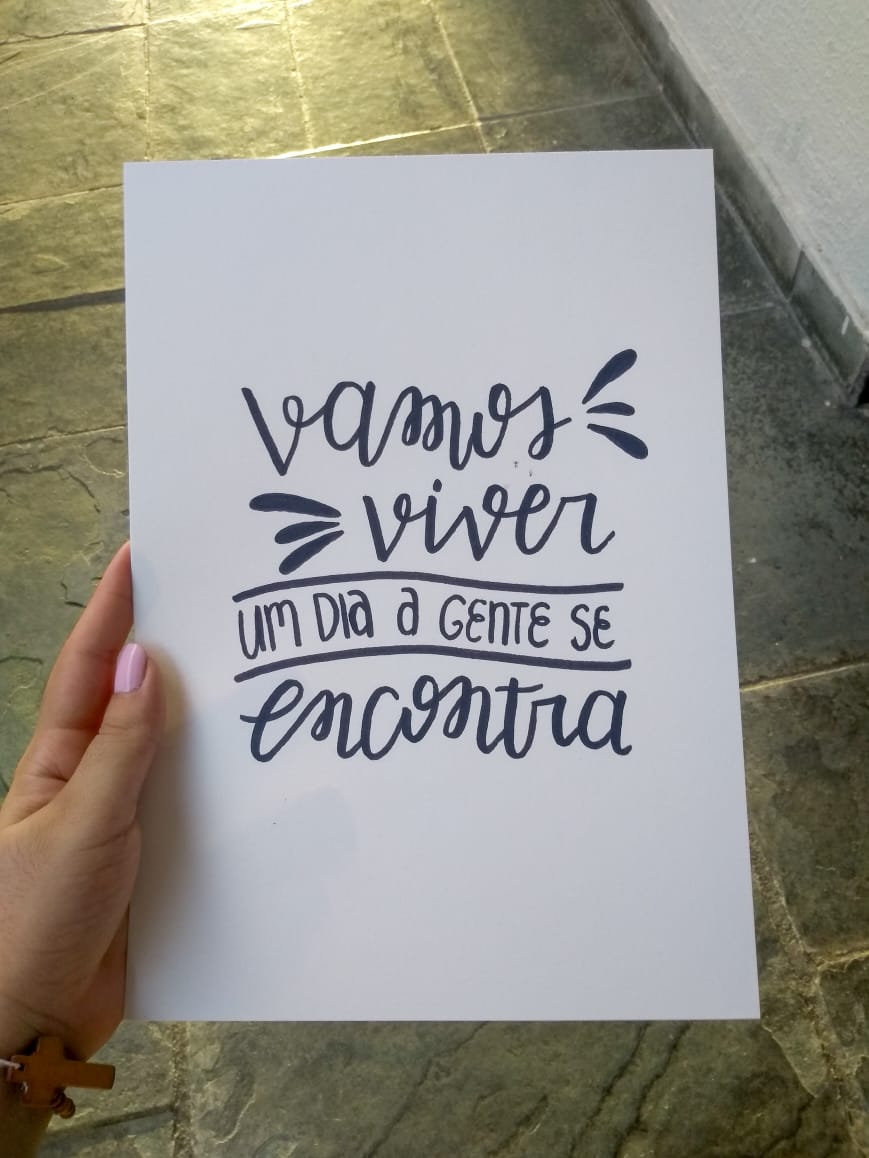 vamos
viver
UM DIA A GENTE SE
encontra